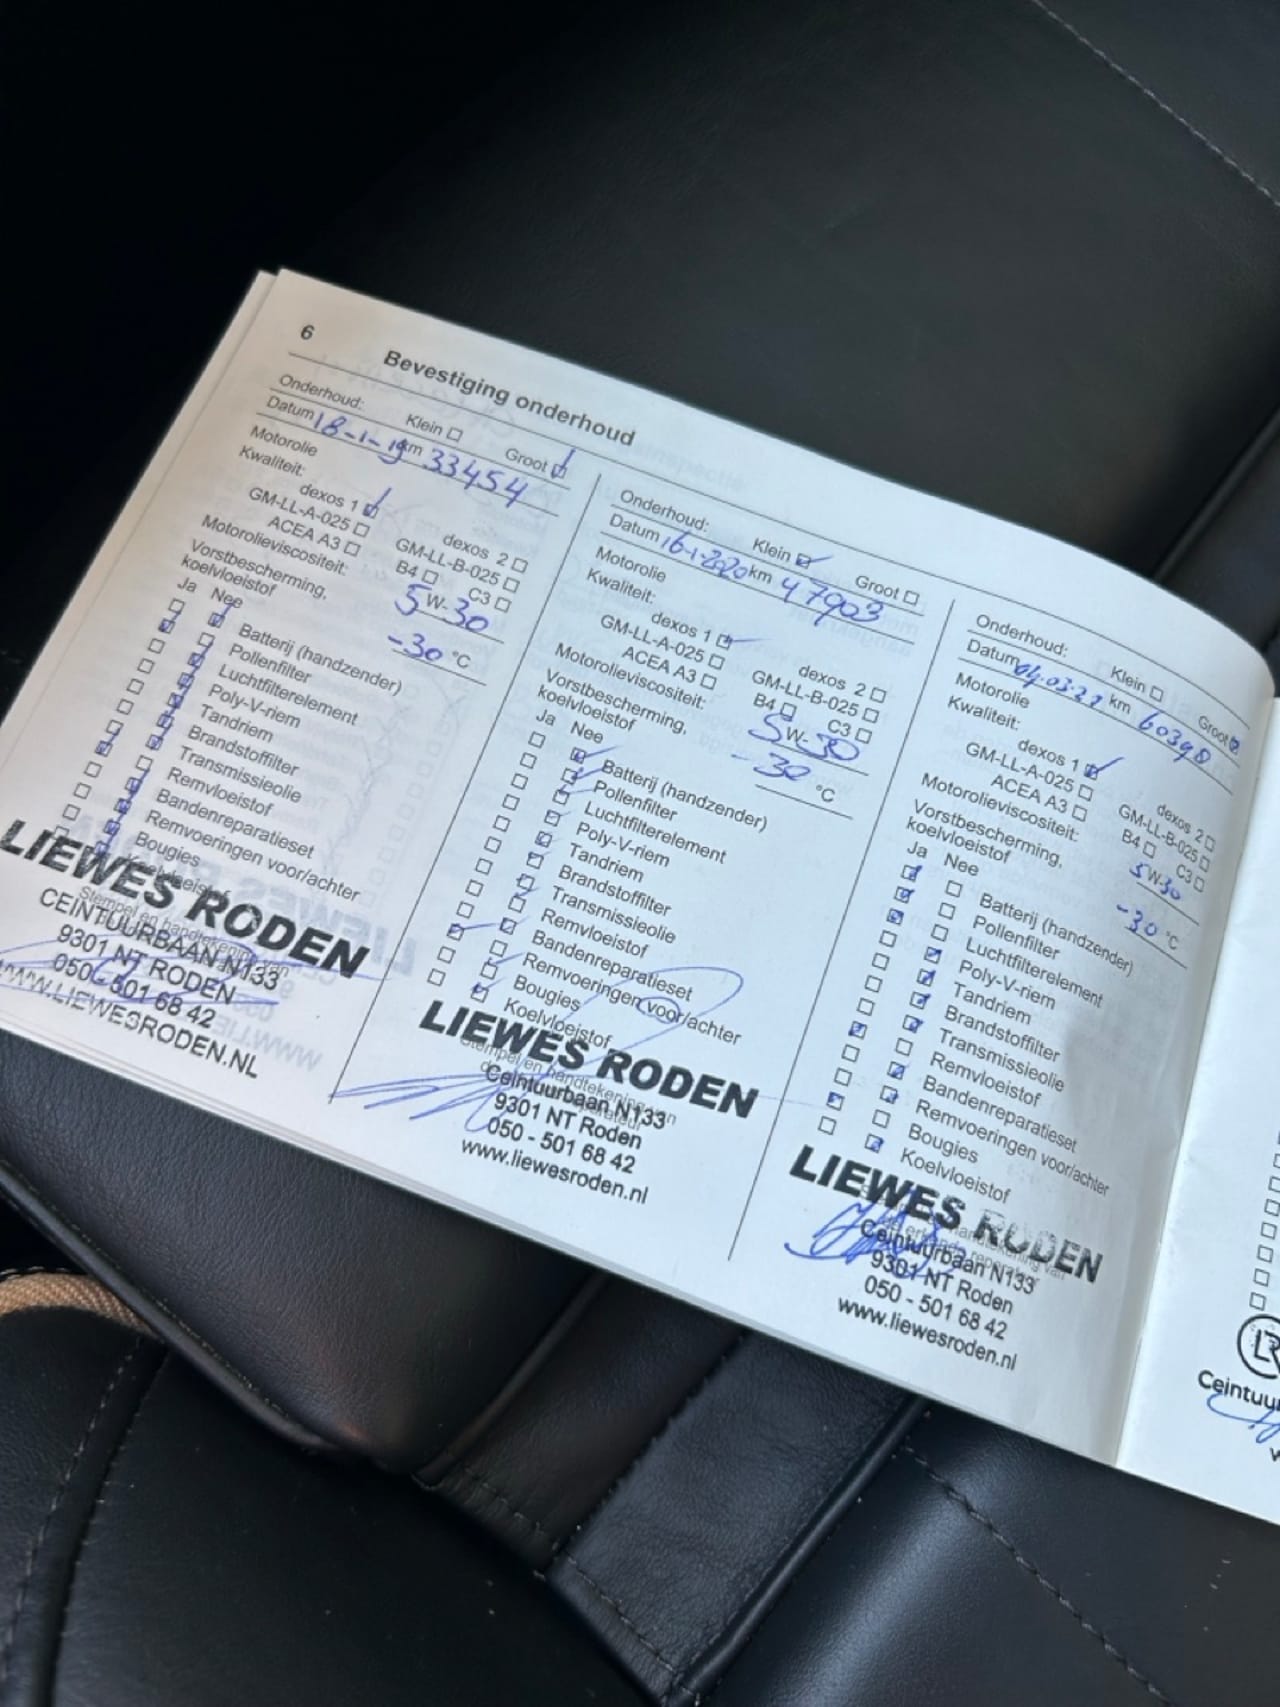 6
Bevestiging onderhoud
Onderhoud: Klein Groot
Datum 18-1-19 km 33454
Motorolie
Kwaliteit:
dexos 1 dexos 2
GM-LL-A-025 GM-LL-B-025
ACEA A3 B4 C3
Motorolieviscositeit: 5 W- 30
Vorstbescherming,
koelvloeistof -30 °C
Ja Nee
Batterij (handzender)
Pollenfilter
Luchtfilterelement
Poly-V-riem
Tandriem
Brandstoffilter
Transmissieolie
Remvloeistof
Bandenreparatieset
Remvoeringen voor/achter
Bougies
Koelvloeistof
Stempel en handtekening van
LIEWES RODEN
CEINTUURBAAN N133
9301 NT RODEN
050-501 68 42
WWW.LIEWESRODEN.NL
Onderhoud: Klein Groot
Datum 16-1-2020 km 47903
Motorolie
Kwaliteit:
dexos 1 dexos 2
GM-LL-A-025 GM-LL-B-025
ACEA A3 B4 C3
Motorolieviscositeit: 5 W- 30
Vorstbescherming,
koelvloeistof -30 °C
Ja Nee
Batterij (handzender)
Pollenfilter
Luchtfilterelement
Poly-V-riem
Tandriem
Brandstoffilter
Transmissieolie
Remvloeistof
Bandenreparatieset
Remvoeringen voor/achter
Bougies
Koelvloeistof
Stempel en handtekening van
LIEWES RODEN
Ceintuurbaan N133
9301 NT Roden
050 - 501 68 42
www.liewesroden.nl
Onderhoud: Klein Groot
Datum 04.03.21 km 60398
Motorolie
Kwaliteit:
dexos 1 dexos 2
GM-LL-A-025 GM-LL-B-025
ACEA A3 B4 C3
Motorolieviscositeit: 5 W- 30
Vorstbescherming,
koelvloeistof -30 °C
Ja Nee
Batterij (handzender)
Pollenfilter
Luchtfilterelement
Poly-V-riem
Tandriem
Brandstoffilter
Transmissieolie
Remvloeistof
Bandenreparatieset
Remvoeringen voor/achter
Bougies
Koelvloeistof
LIEWES RODEN
Ceintuurbaan N133
9301 NT Roden
050 - 501 68 42
www.liewesroden.nl
LR
Ceintuur